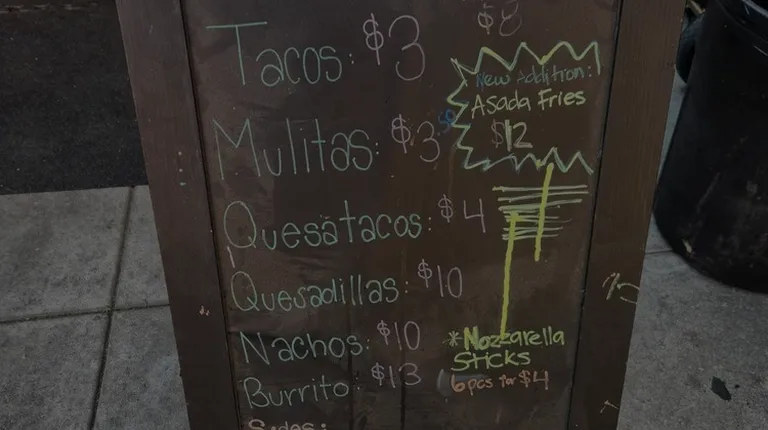 $8
Tacos: $3
Mulitas: $3.50
Quesatacos: $4
Quesadillas: $10
Nachos: $10
Burrito: $13
Sodas:
New Addition!
Asada Fries
$12
*Mozzarella
Sticks
6pcs for $4